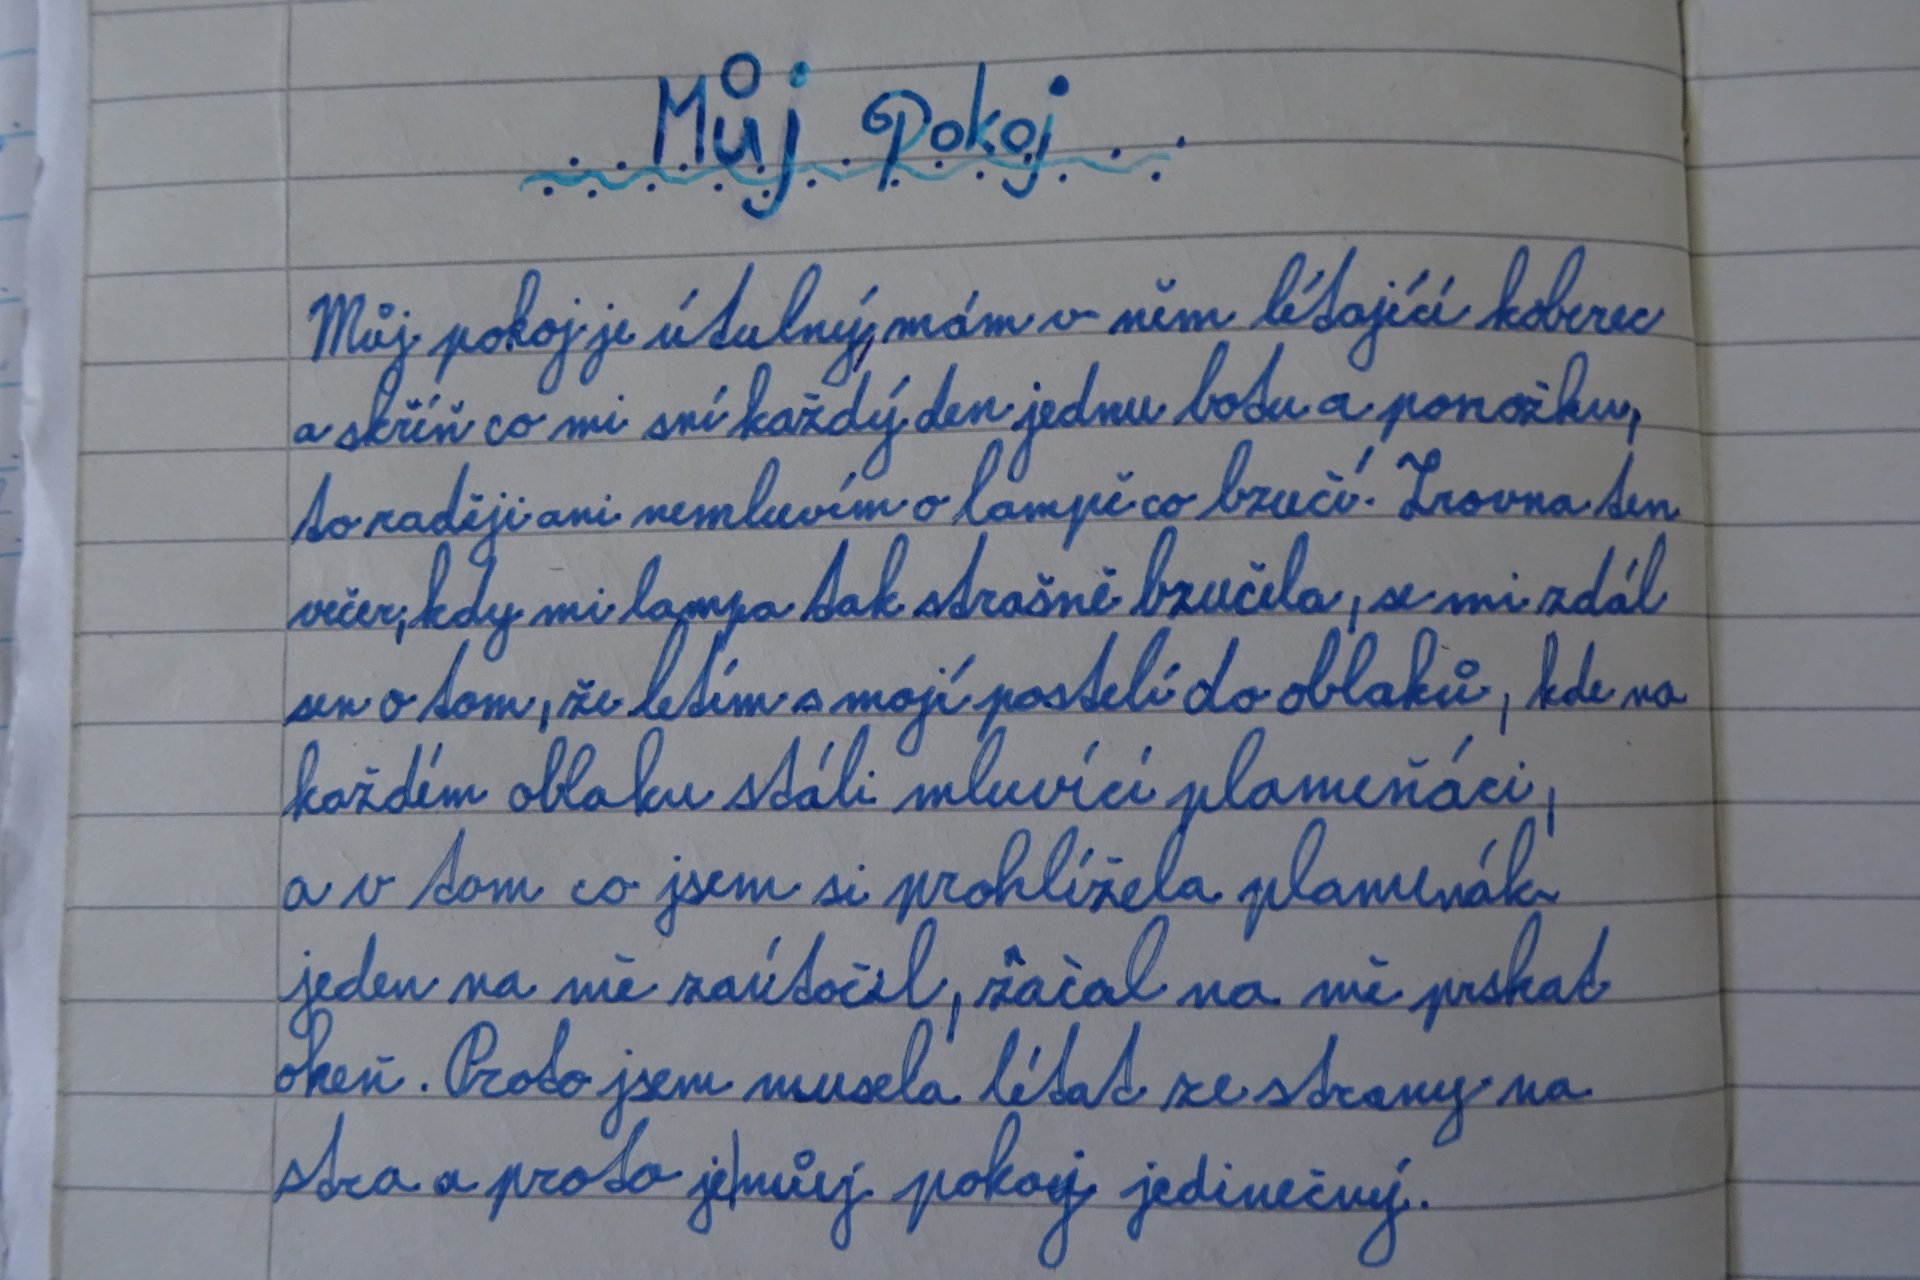 Můj Pokoj
Můj pokoj je útulný, mám v něm létající koberec
a skříň co mi sní každý den jednu botu a ponožku,
to raději ani nemluvím o lampě co bzučí. Zrovna ten
večer, kdy mi lampa tak strašně bzučela, se mi zdál
sen o tom, že letím s mojí postelí do oblaků, kde na
každém oblaku stáli mluvící plameňáci,
a v tom co jsem si prohlížela plamenák
jeden na mě zaútočil, začal na mě prskat
oheň. Proto jsem musela létat ze strany na
stra a proto je můj pokoj jedinečný.